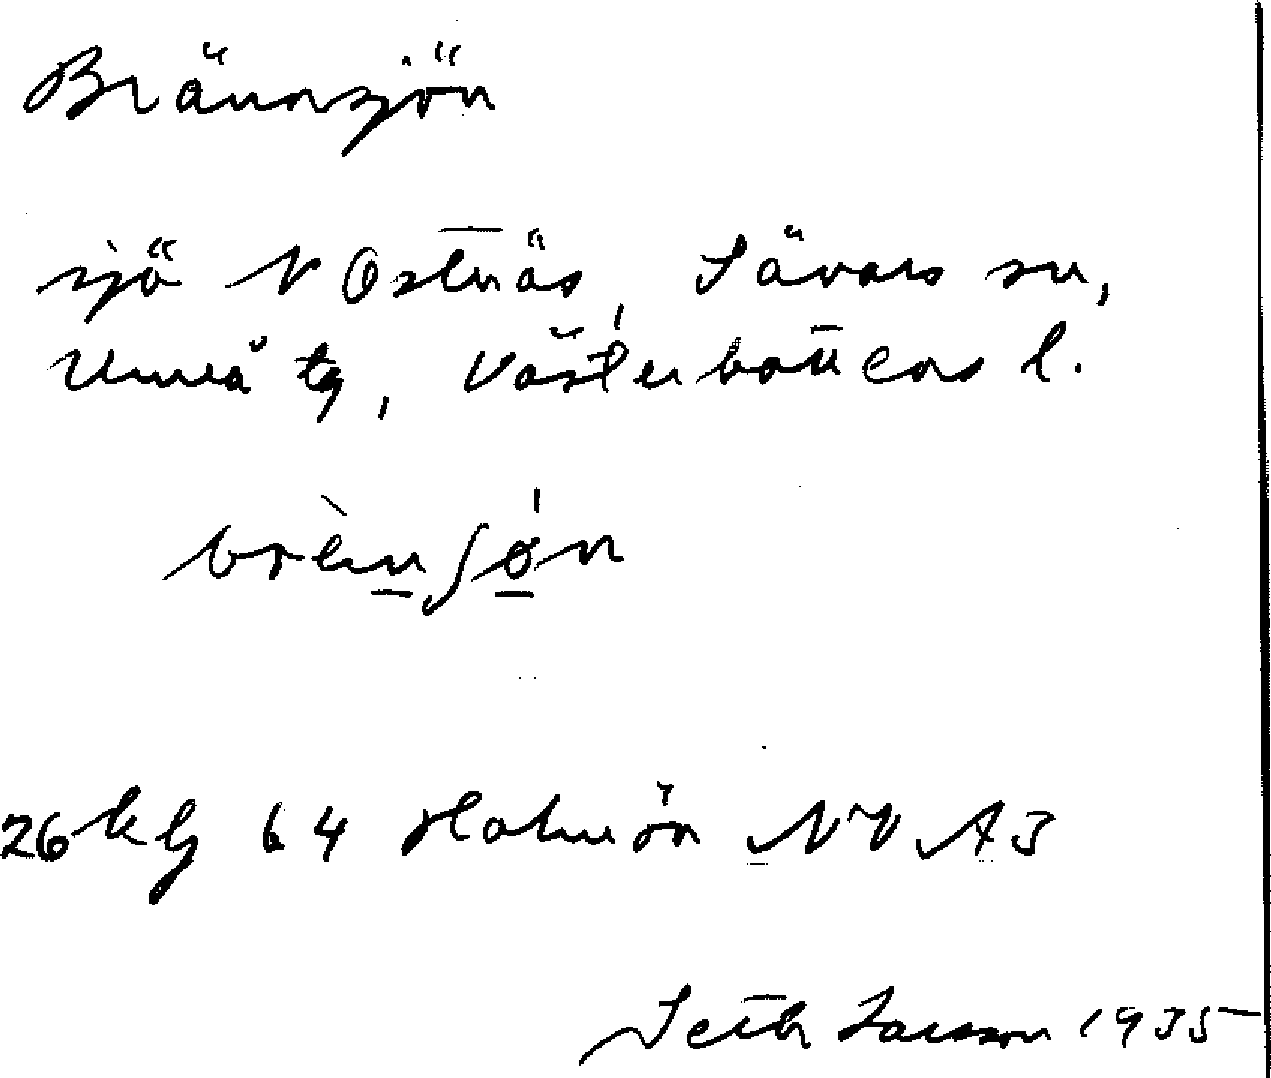 Brännsjön
sjö N Ostnäs, Sävars sn,
Umeå tg, Västerbottens l.
brènʃǿn
26 kbl 64 Holmön NV A3
Seth Larsson 1935